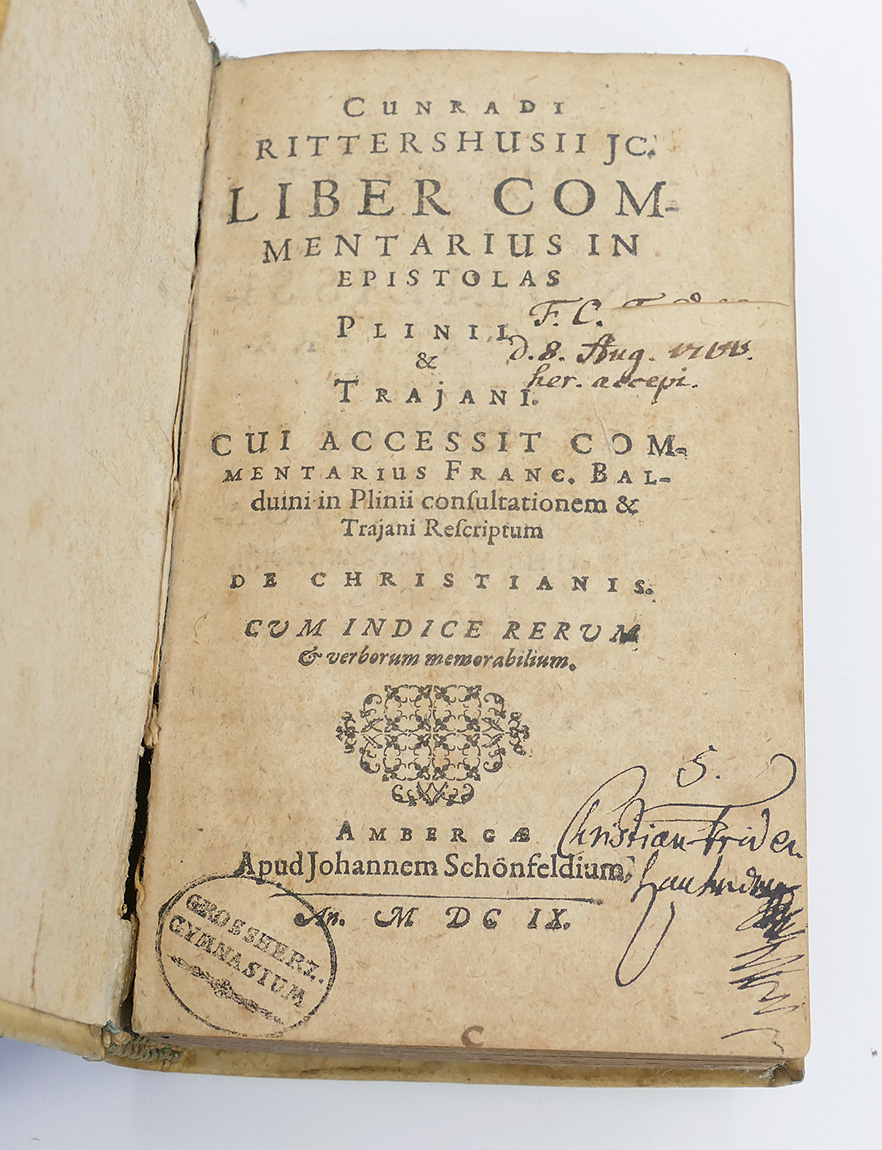 CUNRADI
RITTERSHUSII JC.
LIBER COM-
MENTARIUS IN
EPISTOLAS
PLINII
F. C.
&
d. 8. Aug.
her. accepi.
TRAJANI.
CUI ACCESSIT COM-
MENTARIUS FRANC. BAL-
duini in Plinii conſultationem &
Trajani Reſcriptum
DE CHRISTIANIS.
CVM INDICE RERVM
& verborum memorabilium.
S.
AMBERGÆ
Christian Frider
Apud Johannem Schönfeldium,
An. M DC IX.
GROSSHERZ.
GYMNASIUM
C